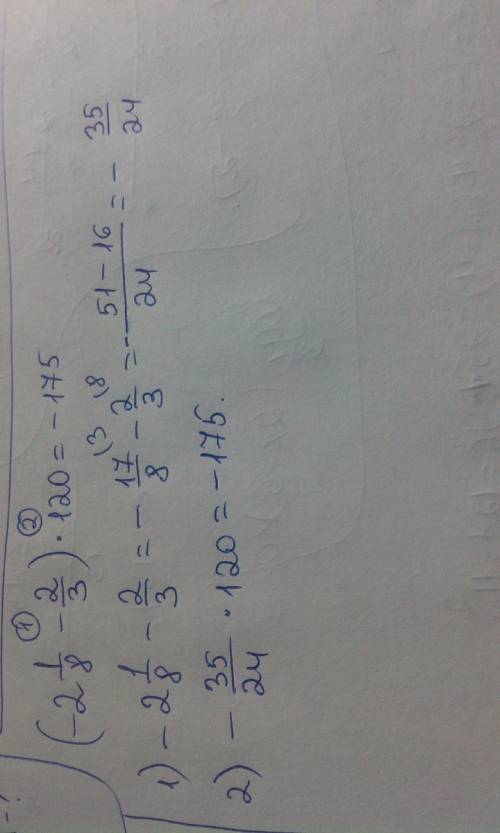 (-2 1/8 - 2/3) · 120 = -175
1) -2 1/8 - 2/3 = -17/8 - 2/3 = -(51 - 16)/24 = -35/24
2) -35/24 · 120 = -175.